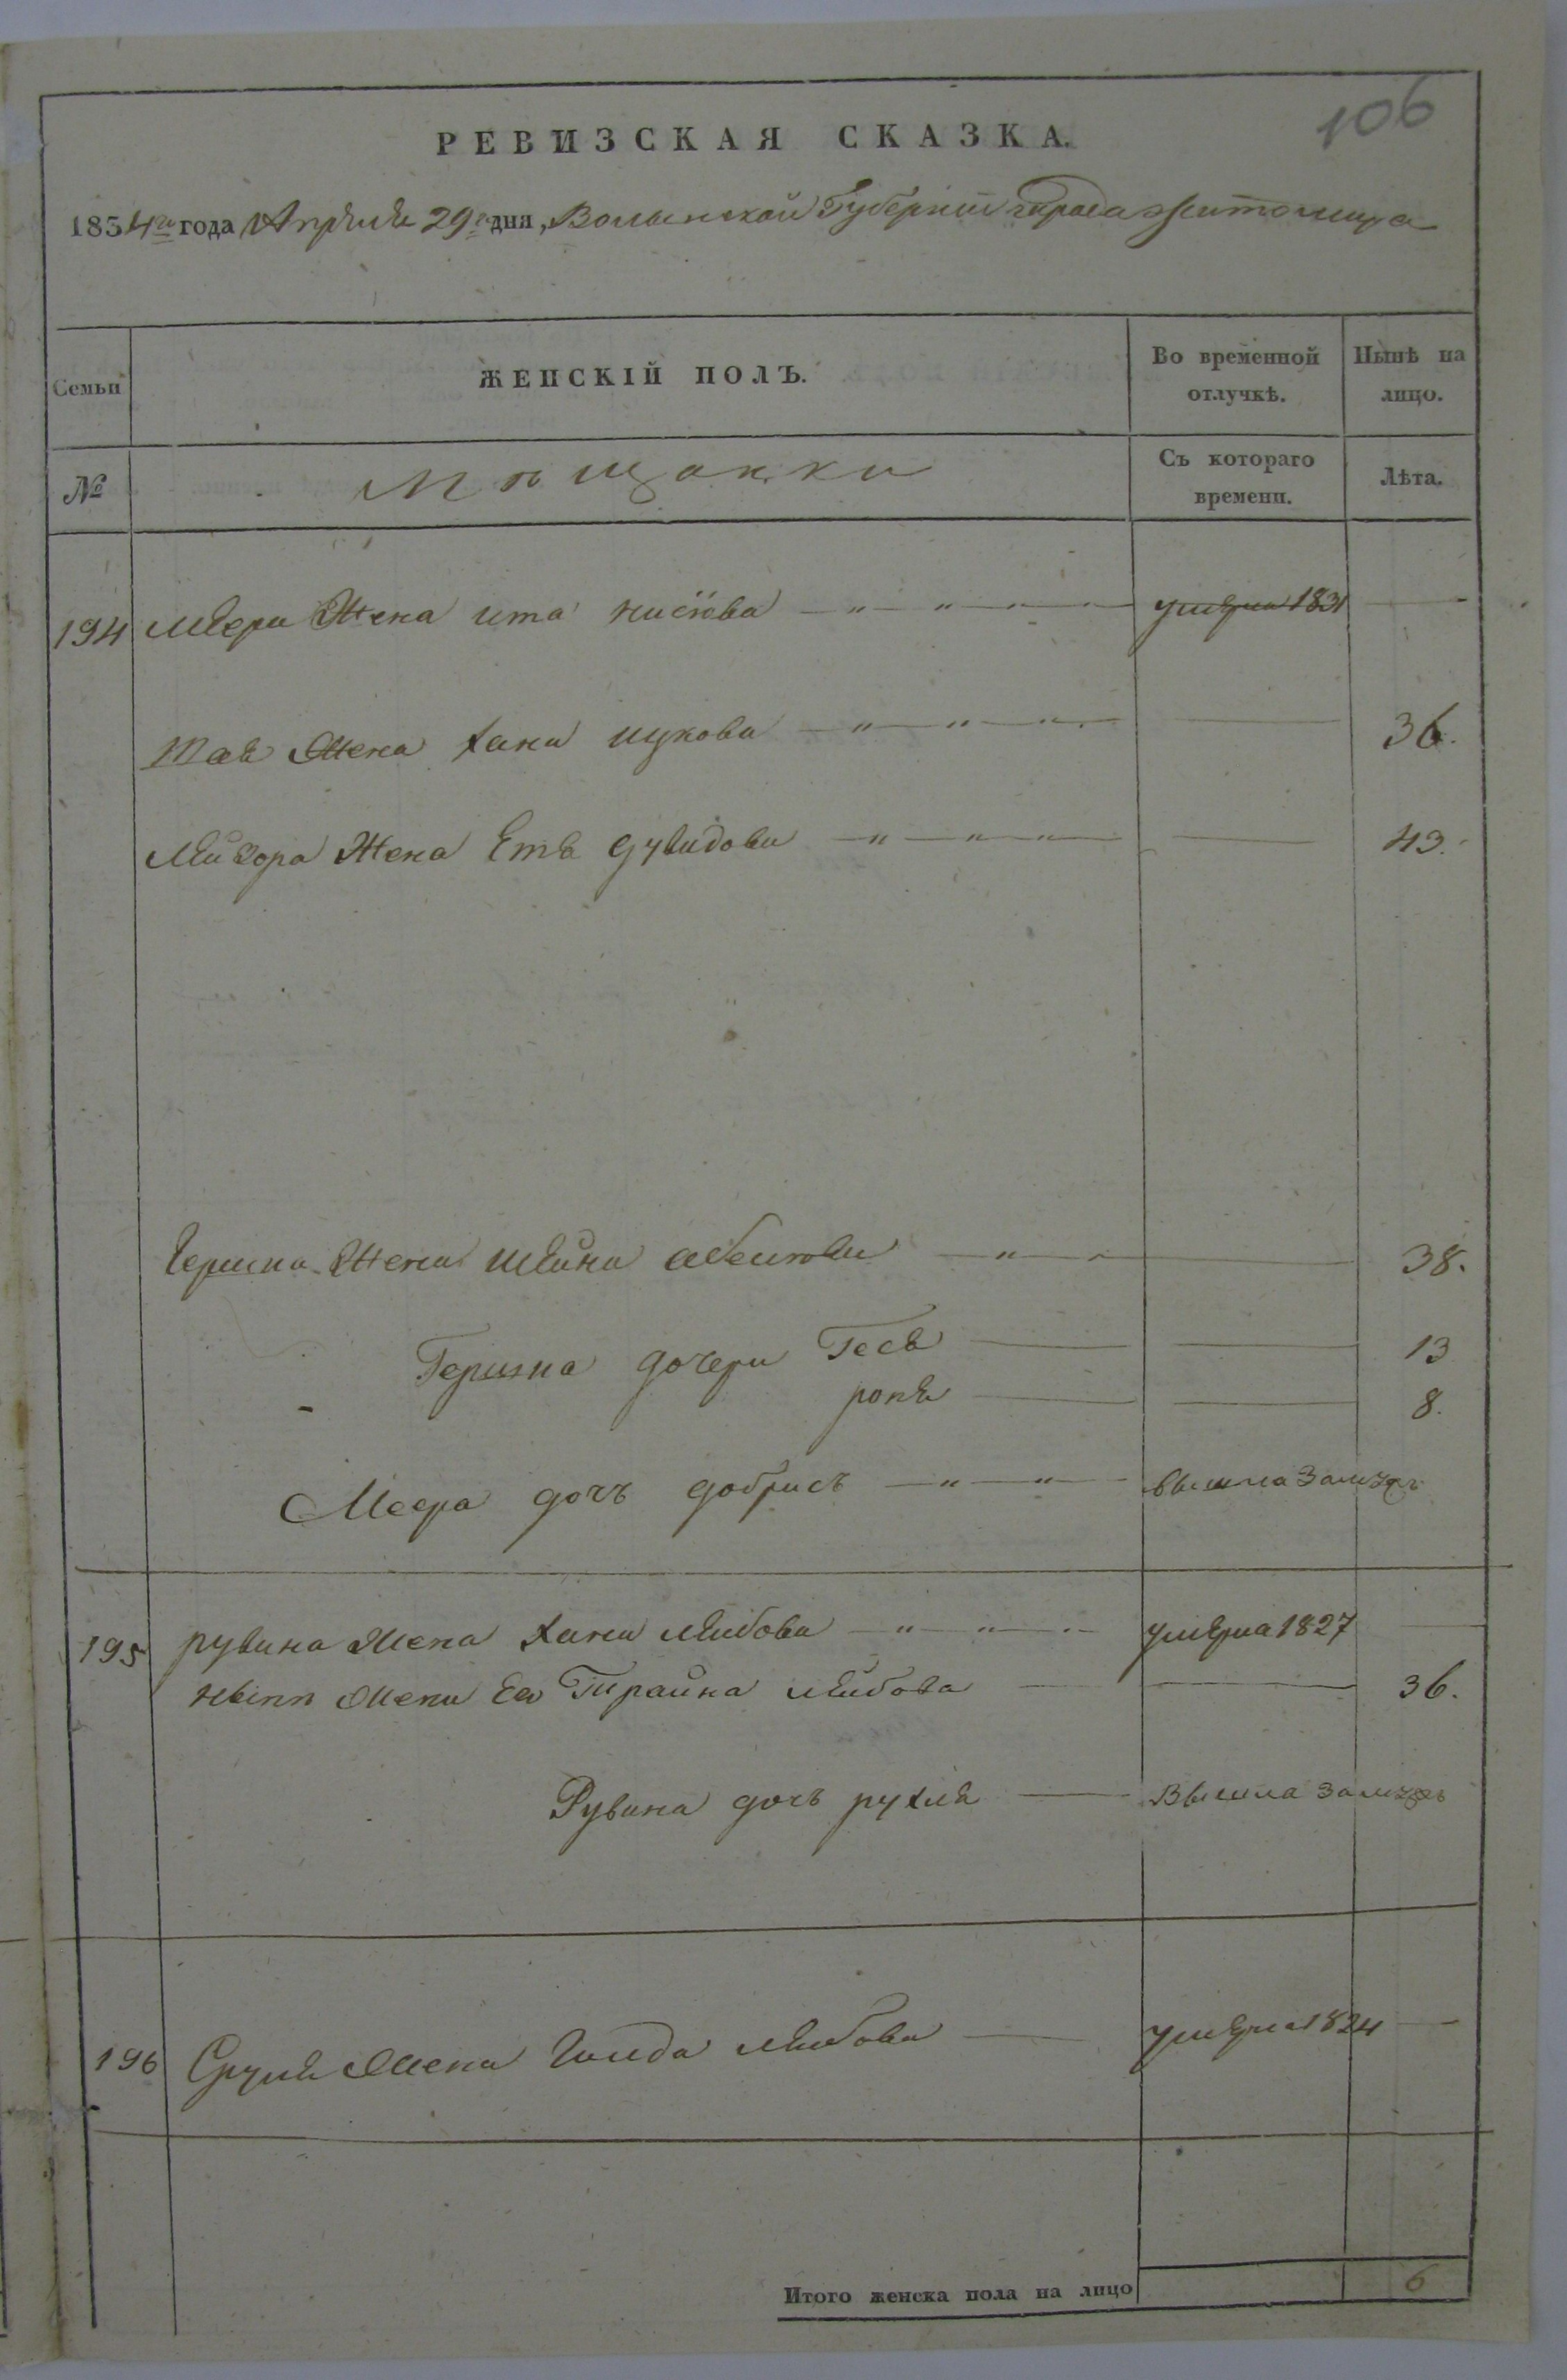 106
РЕВИЗСКАЯ СКАЗКА.
1834го года Апреля 29го дня, Волынской Губернии города Житомира
Семьи
ЖЕНСКІЙ ПОЛЪ.
Во временной отлучкѣ.
Нынѣ на лицо.
№
Мѣщанки
Съ котораго времени.
Лѣта.
194 Меера Жена ита " " " умерла 1831 —
Жена Хана ицкова " " " — 36.
Лейзора Жена Етя дувидова " " " — 43.
Гершка Жена Шейна " — 38.
Гершка дочери Гося — — 13
роня — — 8.
Меера дочь добрысь " " вышла замужъ
195 рувина Жена Хана лейбова " " умерла 1827 —
нынѣ Жена его Трайна лейбова — — 36.
Рувина дочь рухля — Вышла замужъ
196 Сруля Жена Голда лейбова — умерла 1824 —
Итого женска пола на лицо 6